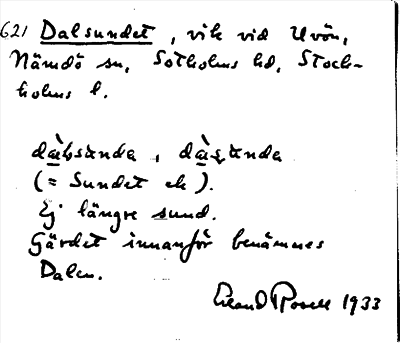 621 Dalsundet, vik vid Uvön,
Nämdö sn, Sotholms hd, Stock-
holms l.
(= Sundet ek).
Ej längre sund.
Gärdet innanför benämnes
Dalen.
Erland Rosell 1933